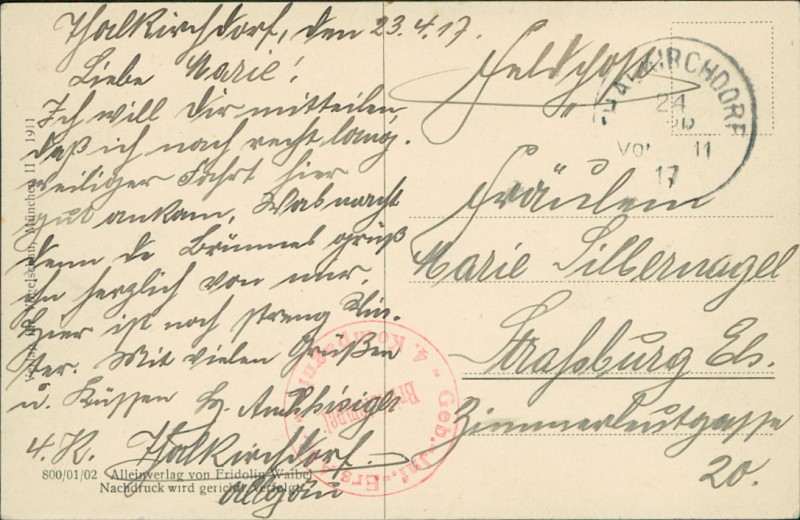 Thalkirchdorf, den 23.4.17.
Liebe Marie!
Ich will Dir mitteilen,
daß ich nach recht lang-
weiliger Fahrt hier
gut ankam. Was macht
denn de Brummel grüß
ihn herzlich von mir.
Hier ist noch streng Win-
ter. Mit vielen Grüßen
u. Küssen
4. K. Thalkirchdorf.
Allgäu
Feldpost
Fräulein
Marie Silbernagel
Straßburg Els.
Zimmerleutgasse
20.
THALKIRCHDORF
24
17
Geb. Inf.-Ers.
4. Kompagnie
Briefstempel
München 1911
800/01/02 Alleinverlag von Fridolin Waibel
Nachdruck wird gerichtl. verfolgt